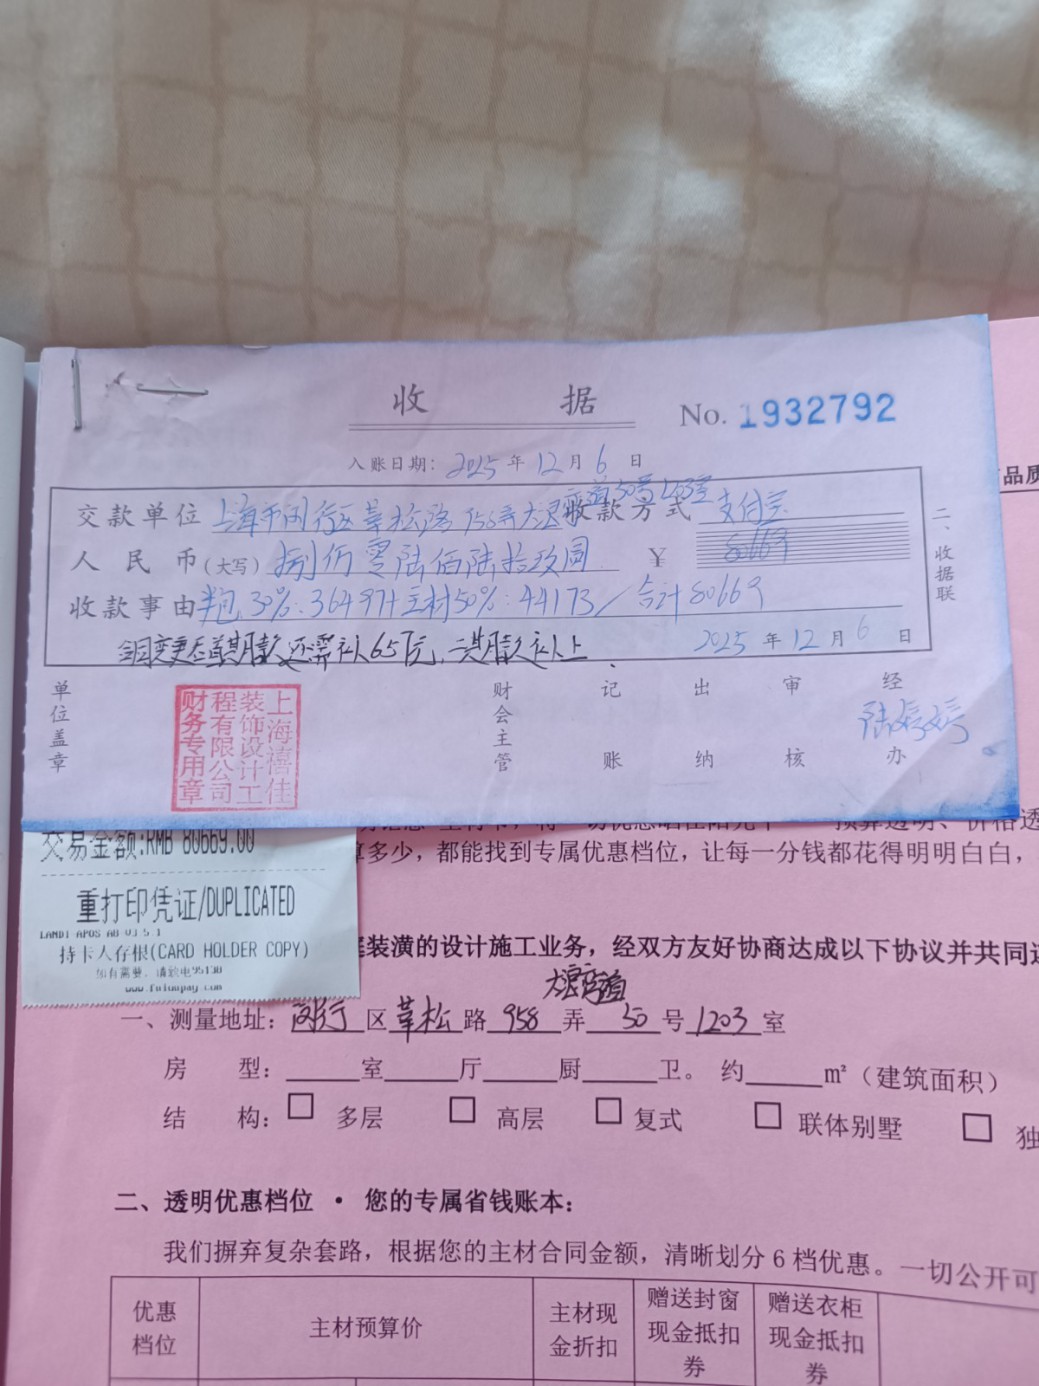 收 据
No. 1932792
入账日期: 2025 年 12 月 6 日
交款单位 上海市闵行区莘松路958弄大浪湾道50号1203室 收款方式 支付宝
人民币(大写) 捌仟零陆佰陆拾玖圆 ¥ 80669
收款事由 半包30%:36497+主材50%:44173/合计80669
合同变更后首期款还需补65元,二期款补上.
2025 年 12 月 6 日
二、收据联
单位盖章
财会主管
记账
出纳
审核
经办
陆婷婷
上海禧佳装饰设计工程有限公司财务专用章
品质
交易金额:RMB 80669.00
重打印凭证/DUPLICATED
LANDI APOS A8 V3.5.1
持卡人存根(CARD HOLDER COPY)
如有需要,请致电95138
www.fuioupay.com
预算透明、价格透
算多少,都能找到专属优惠档位,让每一分钱都花得明明白白,
庭装潢的设计施工业务,经双方友好协商达成以下协议并共同遵
大浪湾道
一、测量地址: 闵行 区 莘松 路 958 弄 50 号 1203 室
房 型: 室 厅 厨 卫。 约 m²(建筑面积)
结 构: □ 多层 □ 高层 □ 复式 □ 联体别墅 □ 独
二、透明优惠档位 · 您的专属省钱账本:
我们摒弃复杂套路,根据您的主材合同金额,清晰划分 6 档优惠。一切公开可
优惠档位
主材预算价
主材现金折扣
赠送封窗现金抵扣券
赠送衣柜现金抵扣券